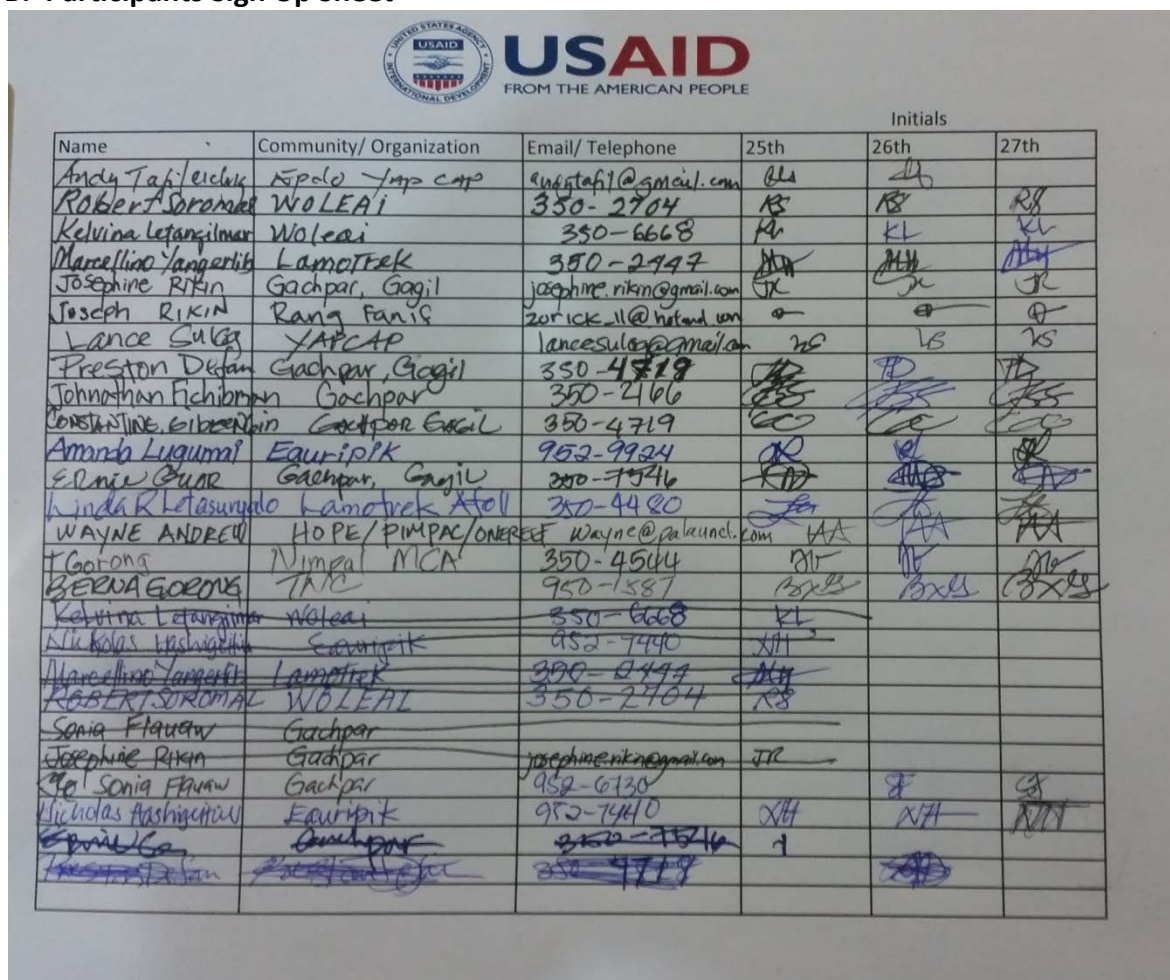 B. Participants Sign Up Sheet
UNITED STATES AGENCY
USAID
INTERNATIONAL DEVELOPMENT
USAID
FROM THE AMERICAN PEOPLE
Initials
Name Community/ Organization Email/ Telephone 25th 26th 27th
Andy Yap CAP
Robert Soromal WOLEAi 350-2704 RS RS RS
Kelvina Letangilmar Woleai 350-6668 KL KL KL
Marcellino Yangerlib Lamotrek 350-2447
Josephine Rikin Gachpar, Gagil josephine.rikin@gmail.com JR JR JR
Joseph RIKIN Rang Fanif
Lance Sulog YAPCAP lancesulog@gmail.com LS LS LS
Preston Defan Gachpar, Gagil 350-4718
Johnathan Fichibman Gachpar 350-2166
CONSTANTINE Gachpar Gagil 350-4719
Amanda Lugumai Eauripik 952-9924
Ernie Guar Gachpar, Gagil 350-7546
Linda R Letasunyalo Lamotrek Atoll 350-4480
WAYNE ANDREW HOPE/PIMPAC/ONEREEF Wayne@palaunet.com WA WA WA
Gorong Nimpal MCA 350-4544
BERNA GORONG TNC 950-1587
Kelvina Letangilmar Woleai 350-6668 KL
Nickolas Eauripik 952-7440 NH
Marcellino Yangerlib Lamotrek 350-2447
ROBERT SOROMAL WOLEAI 350-2704 RS
Sonia Flauaw Gachpar
Josephine Rikin Gachpar josephine.rikin@gmail.com JR
Sonia Flauaw Gachpar 952-6730 SF SF
Nicholas Eauripik 952-7440 NH NH NH
Gachpar 350-7546
350 4718